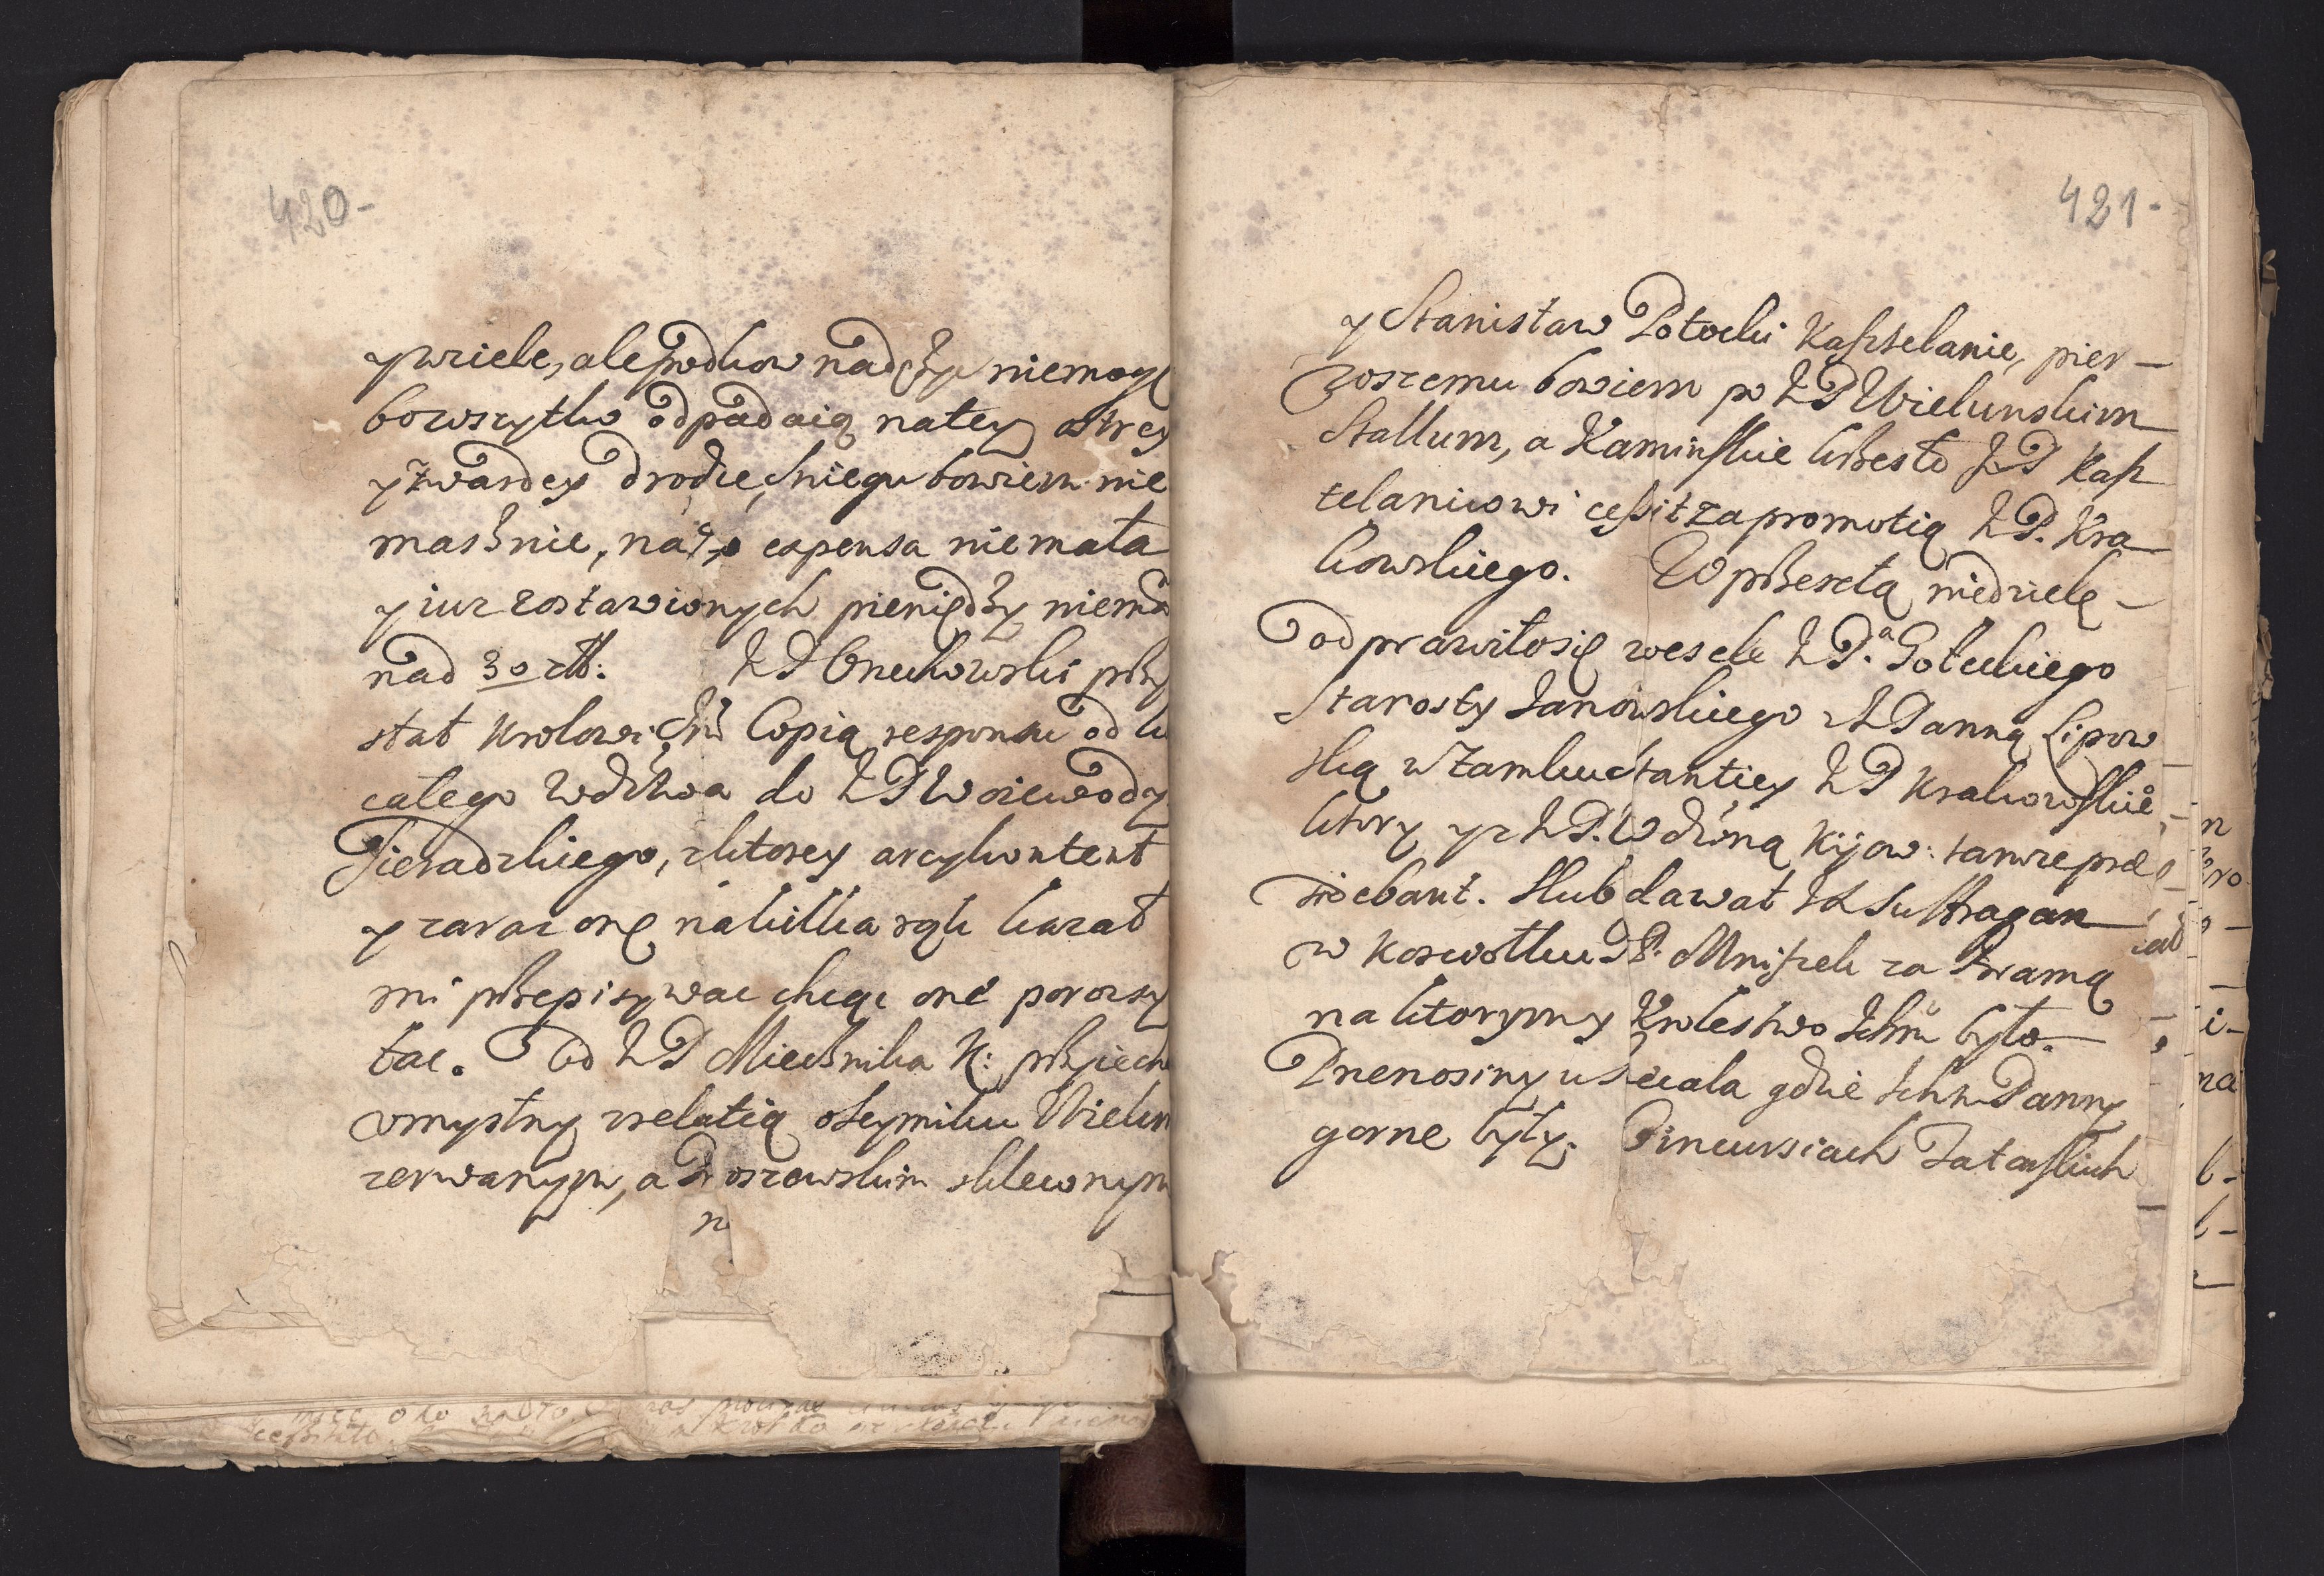 420-
y wziele, ale podkow nadążyc niemogę
bo wszytko odpadaią na tey ostrey
y twardey drodze, sniegu bowiem nie
masz nic, na to expensa niemała
y iuz zostawionych pieniędzy niema
nad 30 zł:  JP Orzechowski przy
słał Krolowi Copią responsu od
całego Wdztwa do JP Woiewody
Sieradzkiego, z ktorey arcykontent
y zaraz onę na kilka rąk kazał
mi przepisywac chcąc one porozsy
łac. Od JP Miecznika K: przyiech
umyslny z relatią o Seymiku Wielun
zerwanym, a Proszowskim skleconym
n
421-
y Stanisław Potocki Kasztelanic, pier-
wszemu bowiem po JP Wielunskim
Stallum, a Kaminskie krzesło JP Kasz
telanicowi cessit za promotią JP. Kra
kowskiego. W przeszłą niedzielę -
odprawiło się wesele JP. Potockiego
Starosty Janowskiego z JPanną Lipow
ską w Zamku stantiey JP Krakowskie
ktory y z JP. Wdziną Kijow: tamze prae
sidebant. Slub dawał JX Suffragan
w Kosciołku PP. Mniszek za bramą
na ktorym y Krolestwo Ichm było.
Przenosiny u Secala gdzie Ichm Panny
gorne były. O incursiach Tatarskich